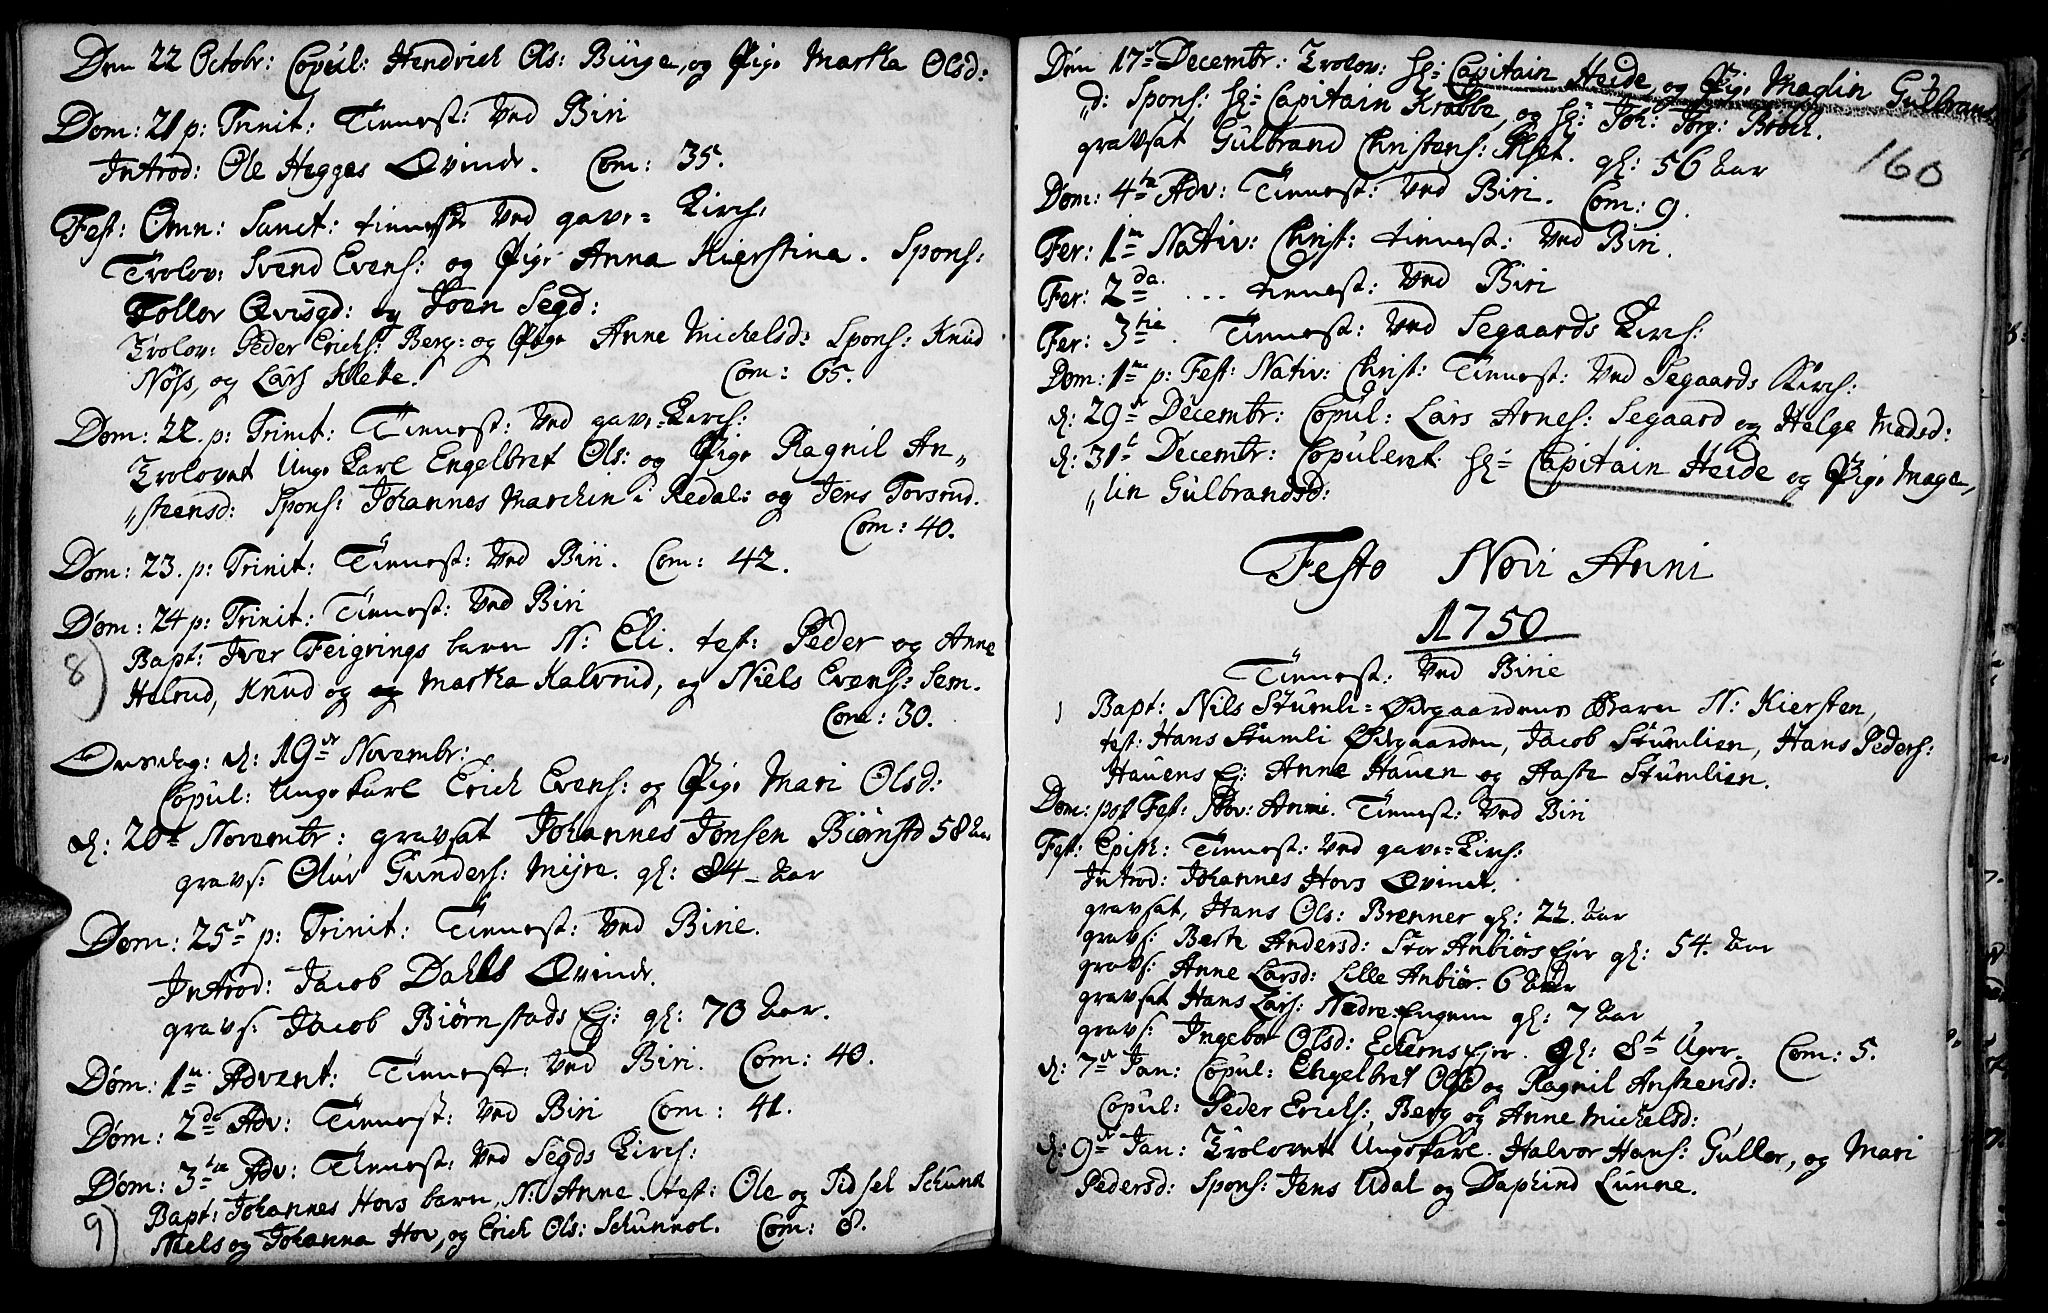 Den 22 Octobr: Copul: Hendrich Ols: Burge, og Pige Martha Olsd:
Dom: 21 p: Trinit: Tiennest: Ved Biri
Introd: Ole Hegges Qvinde. Com: 35.
Fest: Omn: Sanct: tiennest Ved gave= Kirch:
Trolov: Svend Evens: og Pige Anna Kierstina. Spons:
Tollov Qvisgd: og Joen Segd:
Trolov: Peder Erichs: Berg: og Pige Anne Michelsd: Spons: Knud
Nøss, og Lars Klete. Com: 65.
Dom: 22. p: Trinit: Tiennest: Ved gave=Kirch:
Trolovet Unge Karl Engelbret Ols: og Pige Ragnil An„
„stensd: Spons: Johannes Marchin i Redal: og Jens Torsrud.
Com: 40.
Dom: 23. p: Trinit: Tiennest: Ved Biri. Com: 42.
Dom: 24 p: Trinit: Tiennest: Ved Biri
8) Bapt: Iver Feigrings barn N: Eli. test: Peder og Anne
Helrud, Knud og og Martha Kalvrud, og Niels Evens: Sem.
Com: 30.
Onsdag: d: 19de Novembr:
Copul: Ungekarl Erich Evens: og Pige Mari Olsd:
d: 20de Novembr: gravsat Johannes Jonsen Biørnstd 58 Aar
gravs: Oluv Gunders: Myre. gl: 84 Aar
Dom: 25de p: Trinit: Tiennest: Ved Birie.
Introd: Jacob Dahls Qvinde.
gravs: Jacob Biørnstads Ej: gl: 70 Aar.
Dom: 1m Advent: Tiennest: Ved Biri. Com: 40.
Dom: 2da Adv: Tiennest: Ved Biri Com: 41.
Dom: 3tia Adv: Tiennest: Ved Segds Kirch:
9) Bapt: Johannes Hovs barn, N: Anne. test: Ole og Sidsel Schunk
Niels og Johanna Hov, og Erich Ols: Schunnol. Com: 8.
Den 17de Decembr: Trolov: Hr: Capitain Heide og Pige Maglin Gulbrans
„d: Spons: Hr: Capitain Krabbe, og Hr: Joh: Jørg:
gravsat Gulbrand Christens: gl: 56 Aar
160
Dom: 4ta Adv: Tiennest: Ved Biri. Com: 9.
Fer: 1m Nativ: Christ: tiennest: Ved Biri.
Fer: 2da ... tiennest: Ved Biri
Fer: 3tia. Tiennest: Ved Segaards Kirch:
Dom: 1m p: Fest: Nativ: Christ: Tiennest: Ved Segaards Kirch:
d: 29de Decembr: Copul: Lars Arnes: Segaard og Helge Madsd:
d: 31t Decembr: Copuleret Hr: Capitain Heide og Pige Mage„
„lin Gulbrandsd:
Festo Novi Anni
1750
Tiennest: Ved Birie
1 Bapt: Nils Stumli=Ødegaardens Barn N: Kiersten,
test: Hans Stumli Ødegaarden, Jacob Stumlien, Hans Peders:
Hauens Ej: Anne Hauen og Aaste Stumlien.
Dom: post Fest: Nov: Anni. Tiennest: Ved Biri
Fest: Epiph: Tiennest: Ved gave=Kirch:
Introd: Johannes Hovs Qvinde.
gravsat, Hans Ols: Brenner gl: 22. Aar
gravs: Berte Andersd: Stor Anbiørs Ejer gl: 54. Aar
gravs: Anne Larsd: Lille Anbiør. 6 Aar
gravsat Hans Lars: Nedre Engem gl: 7 Aar
gravs: Ingebor Olsd: Echerns ejer. gl: 8t Uger. Com: 5.
d: 7de Jan: Copul: Engelbret Ols: og Ragnil Anstensd:
Copul: Peder Erichs: Berg og Anne Michelsd:
d: 9de Jan: Trolovet Ungekarl. Halvor Hans: Gullor, og Mari
Pedersd: Spons: Jens Udal og Daphind Lunne.